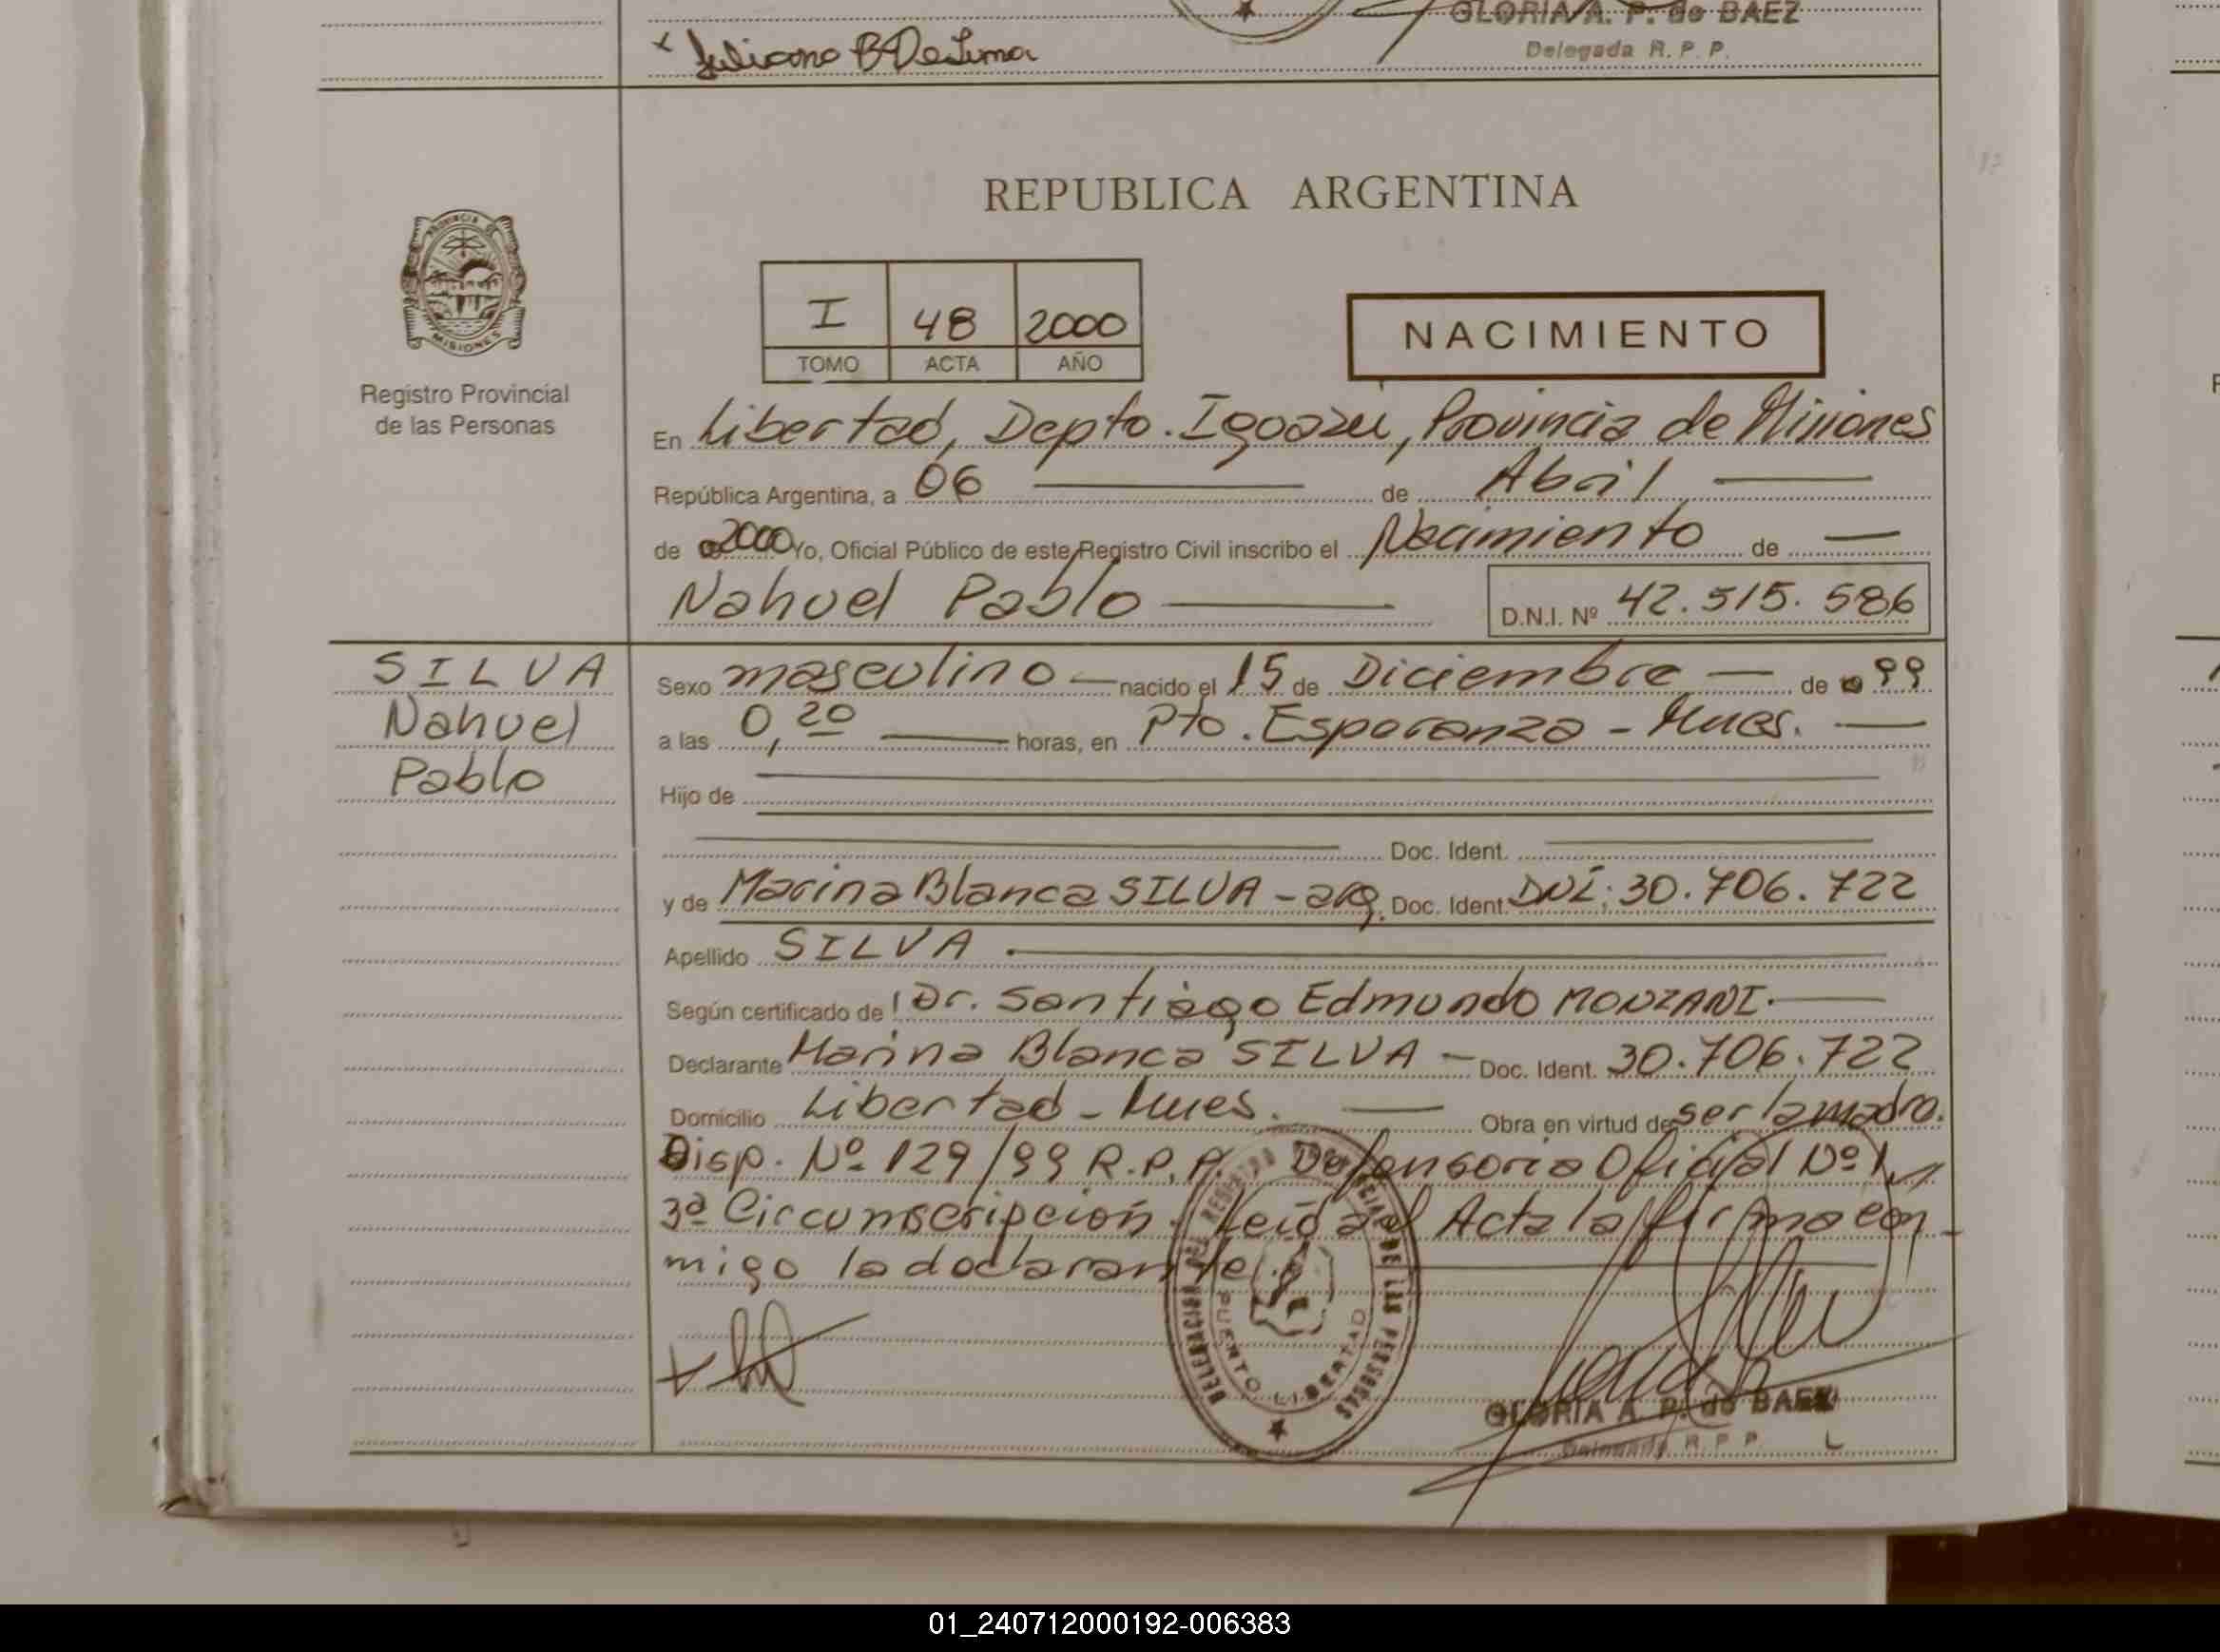 GLORIA A. P. de BAEZ
Delegada R. P. P.
x Juliano B De Lima
REPUBLICA ARGENTINA
PROVINCIA DE
MISIONES
Registro Provincial
de las Personas
I 48 2000
TOMO ACTA AÑO
NACIMIENTO
En Libertad, Depto. Igoazú, Provincia de Misiones
República Argentina, a 06 de Abril
de 2000 Yo, Oficial Público de este Registro Civil inscribo el Nacimiento de
Nahuel Pablo D.N.I. Nº 42.515.586
SILVA
Nahuel
Pablo
Sexo masculino nacido el 15 de Diciembre de 99
a las 0,20 horas, en Pto. Esperanza - Mnes.
Hijo de
Doc. Ident.
y de Marina Blanca SILVA - arg. Doc. Ident. DNI: 30.706.722
Apellido SILVA
Según certificado de Dr. Santiago Edmundo MONZANI.
Declarante Marina Blanca SILVA - Doc. Ident. 30.706.722
Domicilio Libertad - Mnes. Obra en virtud de ser la madre.
Disp. Nº 129/99 R.P.P. Defensoria Oficial Nº 1
3ª Circunscripción. Leida el Acta la firma con-
migo la declarante.
DELEGACION DEL REGISTRO PROVINCIAL DE LAS PERSONAS
PUERTO LIBERTAD
GLORIA A. P. de BAEZ
Delegada R. P. P.
01_240712000192-006383